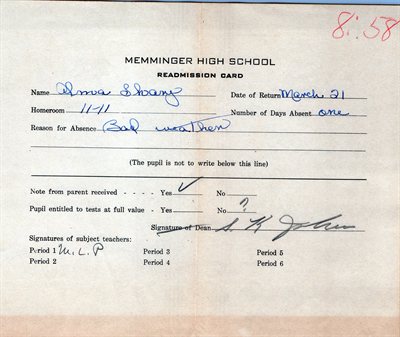 8:58
MEMMINGER HIGH SCHOOL
READMISSION CARD
Name Alma Date of Return March 21
Homeroom 11-11 Number of Days Absent one
Reason for Absence Bad weather
(The pupil is not to write below this line)
Note from parent received - - - - Yes ✓ No
Pupil entitled to tests at full value - Yes No ?
Signature of Dean S. K.
Signatures of subject teachers:
Period 1 M.L.P Period 3 Period 5
Period 2 Period 4 Period 6